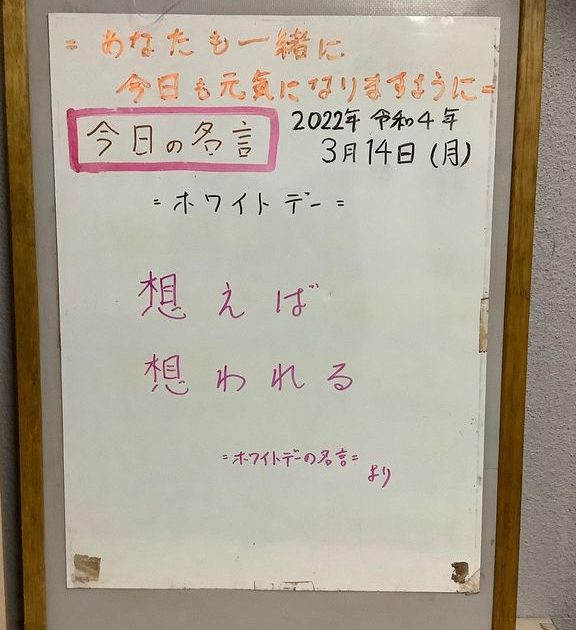 = あなたも一緒に
今日も元気になりますように=
今日の名言
2022年 令和4年
3月14日(月)
= ホワイトデー =
想えば
想われる
= ホワイトデーの名言=
より